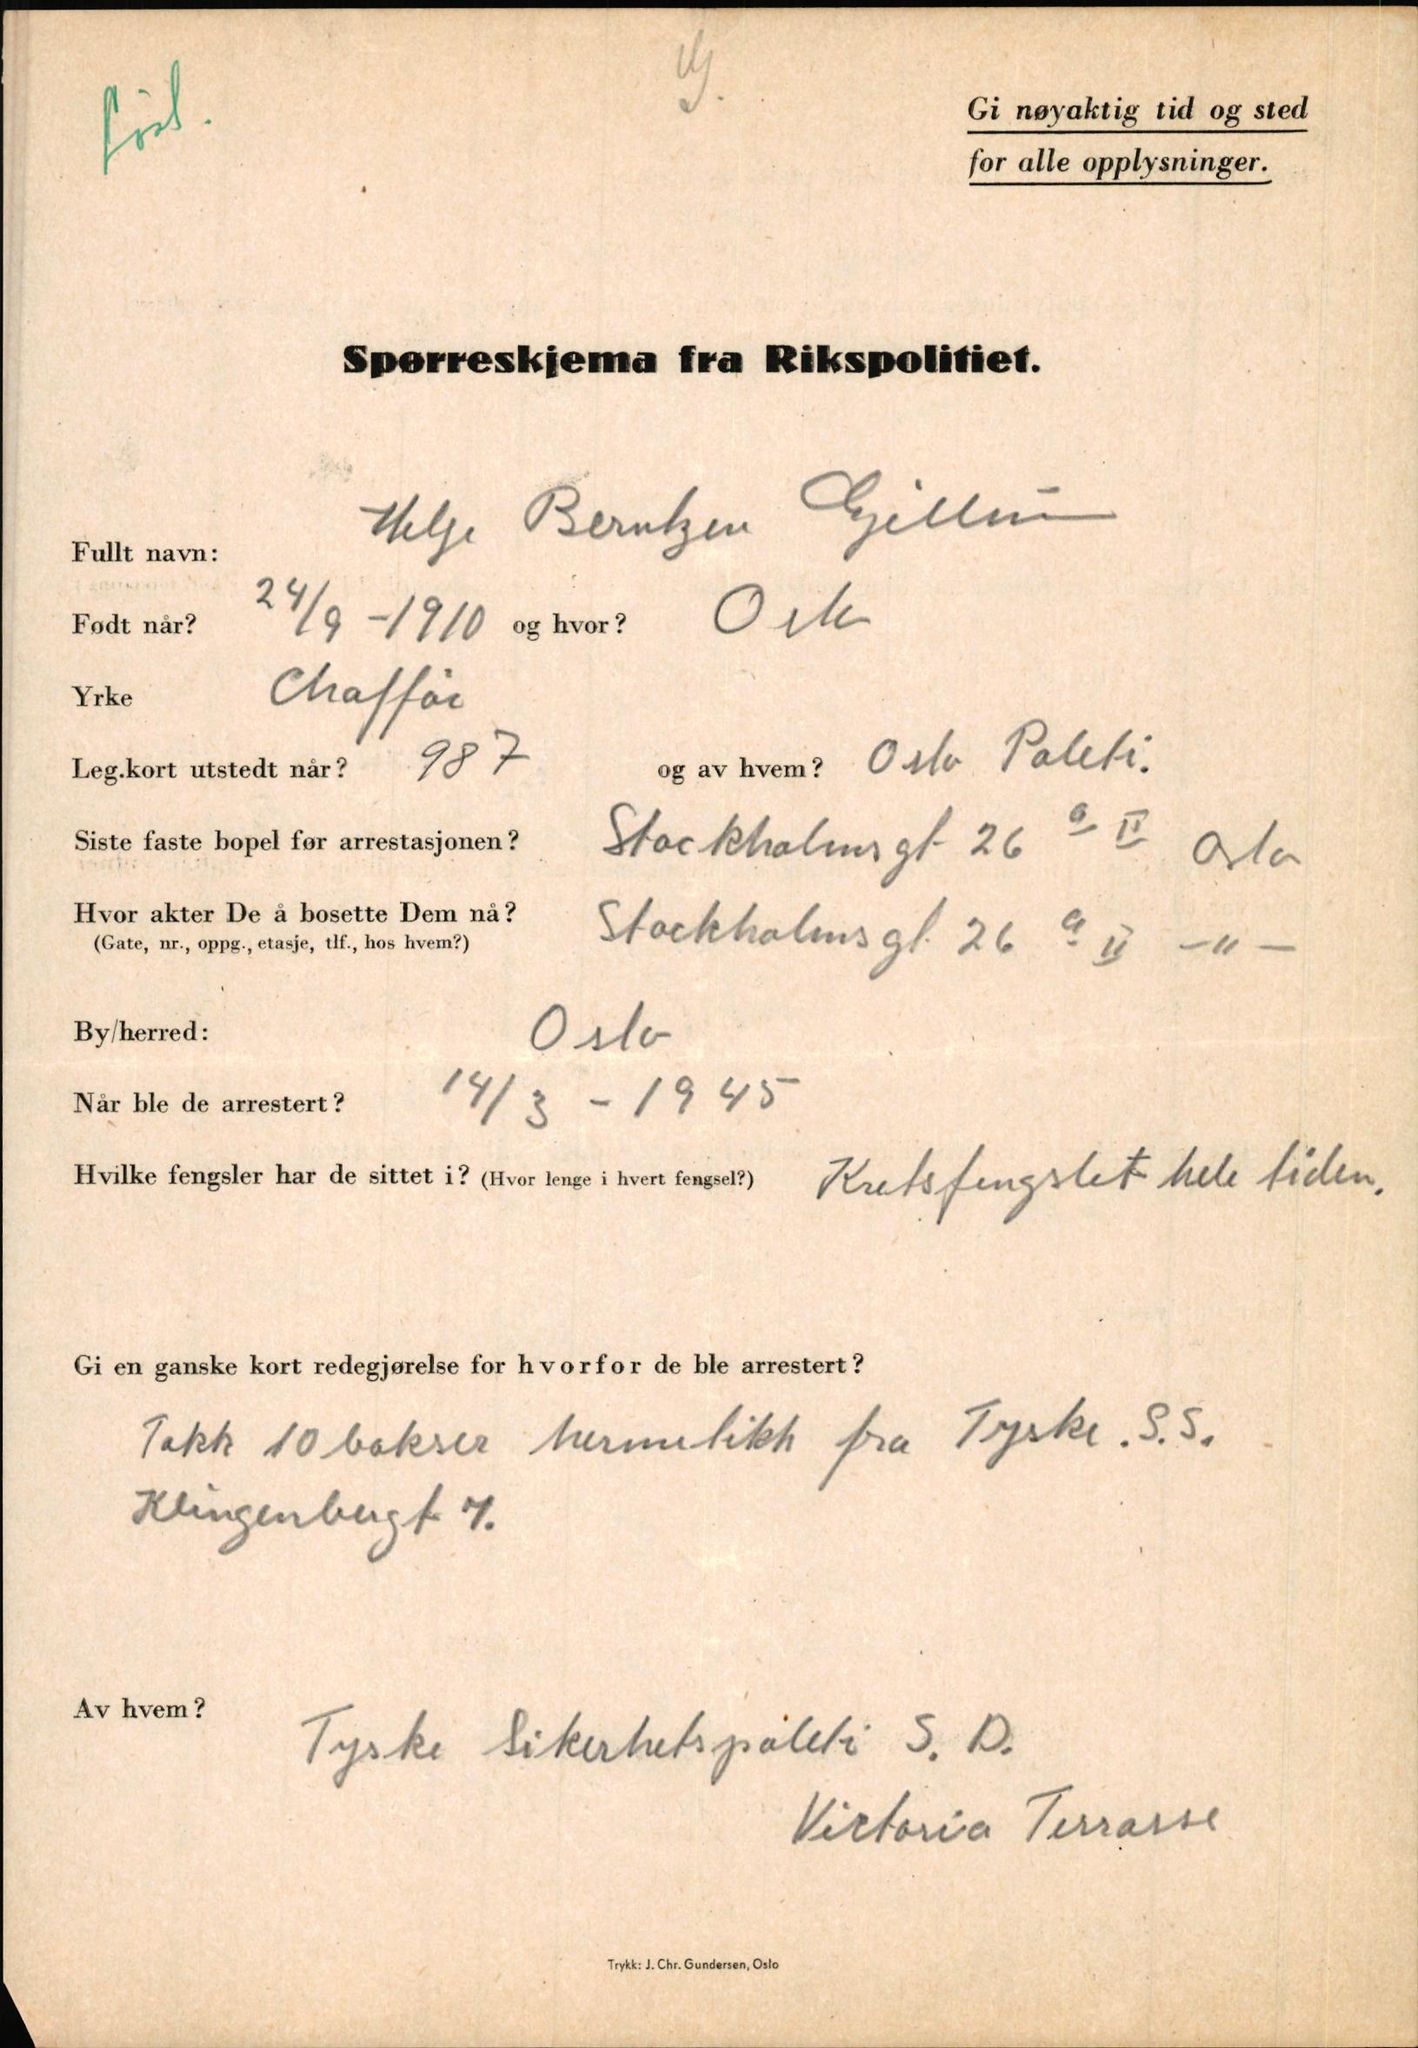 ført.
Gi nøyaktig tid og sted
for alle opplysninger.
Spørreskjema fra Rikspolitiet.
Fullt navn: Helge Berntzen
Født når? 24/9 -1910 og hvor? Oslo
Yrke Chafför
Leg.kort utstedt når? 987 og av hvem? Oslo Politi.
Siste faste bopel før arrestasjonen? Stockholmsgt 26 a II Oslo
Hvor akter De å bosette Dem nå? Stockholmsgt. 26 a II -"-
(Gate, nr., oppg., etasje, tlf., hos hvem?)
By/herred: Oslo
Når ble de arrestert? 14/3 - 1945
Hvilke fengsler har de sittet i? (Hvor lenge i hvert fengsel?) Kretsfengslet hele tiden.
Gi en ganske kort redegjørelse for hvorfor de ble arrestert?
Takk 10 bokser hermetikk fra Tyske. S.S.
Klingenbergt 7.
Av hvem? Tyske Sikerhetspoleti S. D.
Victoria Terrasse
Trykk: J. Chr. Gundersen, Oslo